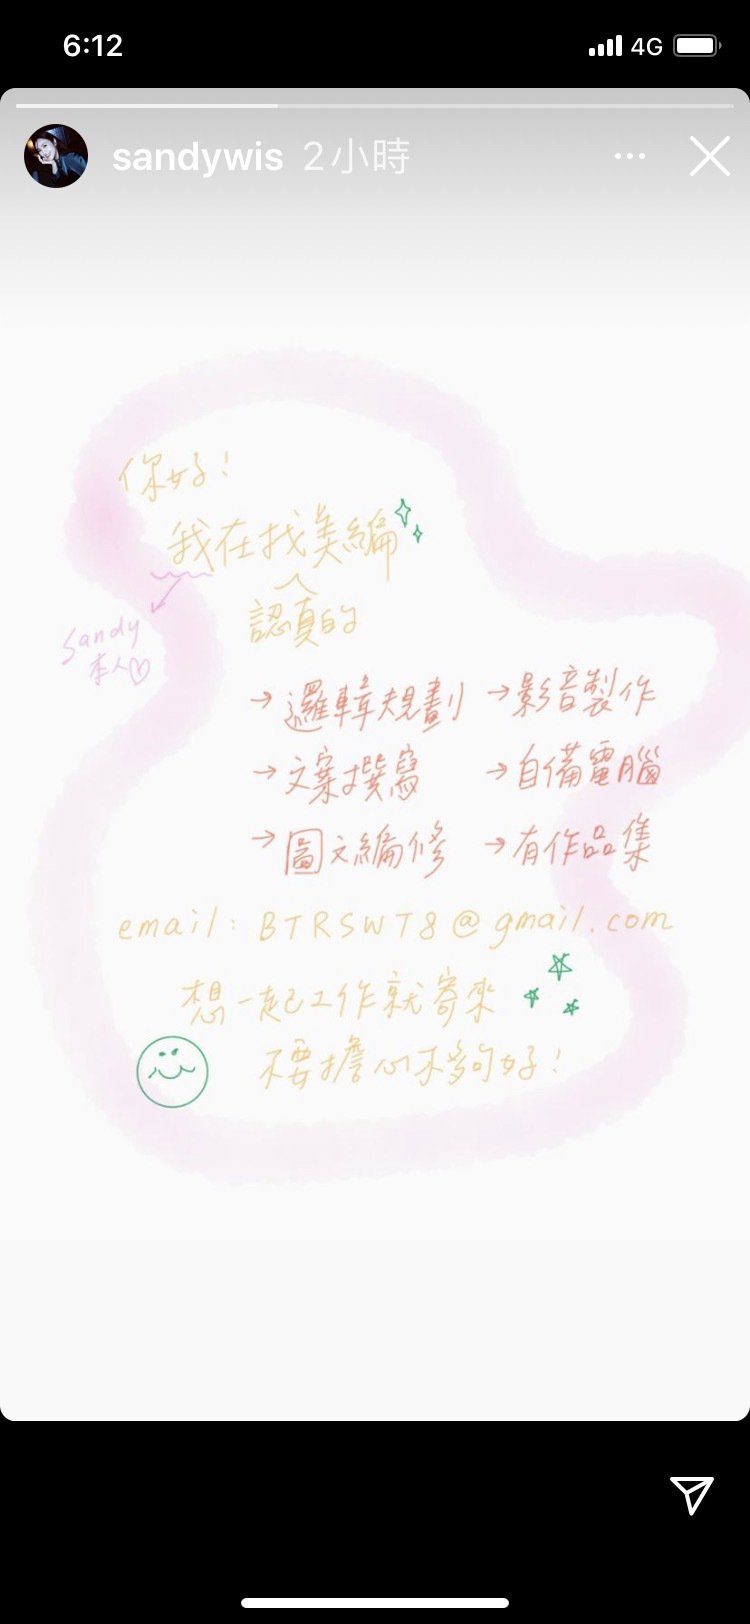 6:12
4G
sandywis 2小時
你好！
我在找美編
認真的
Sandy
本人
→邏輯規劃 →影音製作
→文案撰寫 →自備電腦
→圖文編修 →有作品集
email: BTRSWT8@gmail.com
想一起工作就寄來
不要擔心不夠好！